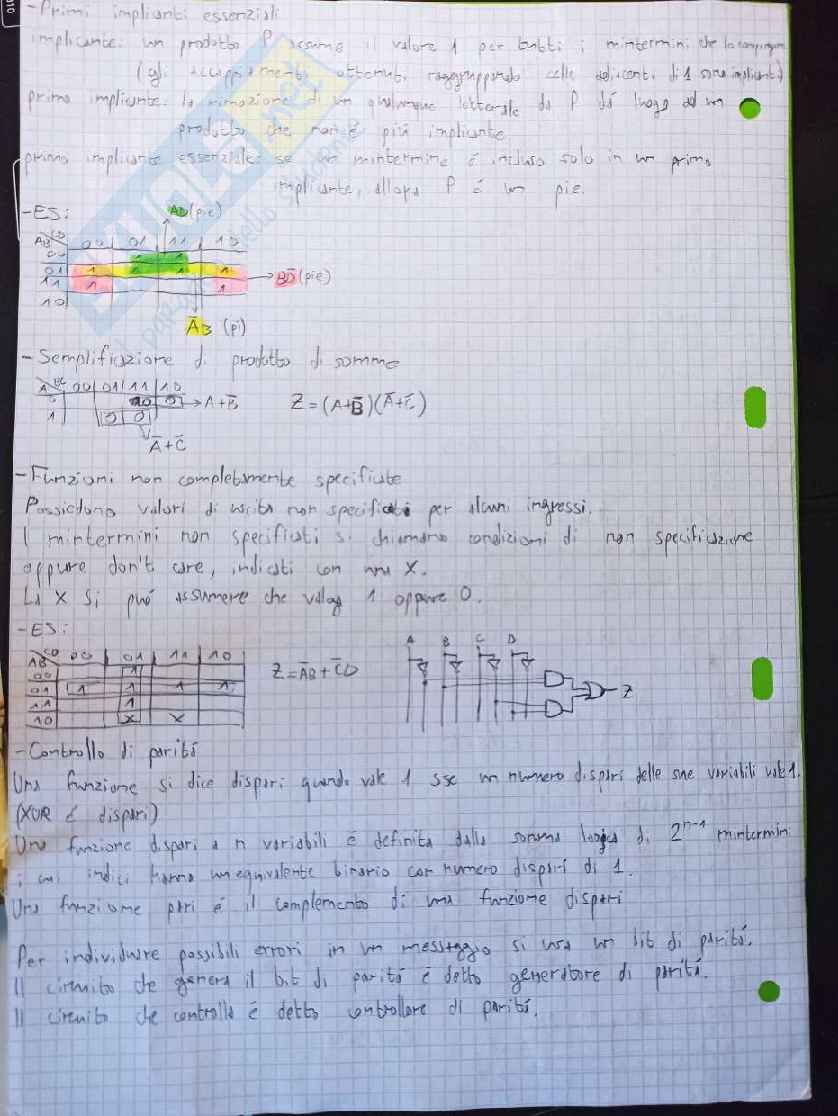 -Primi implicanti essenziali
implicante: un prodotto P assume il valore 1 per tutti i mintermini che lo compongono
(gli accoppiamenti ottenuti raggruppando celle adiacenti di 1 sono implicanti)
primo implicante: la rimozione di un qualunque letterale da P dá luogo ad un
prodotto che non é piú implicante
primo implicante essenziale: se un mintermine é incluso solo in un primo
implicante, allora P é un pie.
-ES:
AD(pie)
AB CD 00 01 11 10
00 1 1
01 1 1 1 1
11 1 1
10
BD̅ (pie)
A̅B (pi)
-Semplificazione di prodotto di somme
A BC 00 01 11 10
0 0 0 → A+B̅
1 0 0
Z=(A+B̅)(A̅+C̅)
A̅+C̅
-Funzioni non completamente specificate
Possiedono valori di uscita non specificati per alcuni ingressi.
I mintermini non specificati si chiamano condizioni di non specificazione
oppure don't care, indicati con una X.
La X si puó assumere che valga 1 oppure 0.
-ES:
AB CD 00 01 11 10
00 1
01 1 1 1 1
11 1
10 X X
Z=A̅B+C̅D
A B C D
Z
-Controllo di paritá
Una funzione si dice dispari quando vale 1 sse un numero dispari delle sue variabili vale 1.
(XOR é dispari)
Una funzione dispari a n variabili é definita dalla somma logica di 2ⁿ⁻¹ mintermini
i cui indici hanno un equivalente binario con numero dispari di 1.
Una funzione pari é il complemento di una funzione dispari
Per individuare possibili errori in un messaggio si usa un bit di paritá.
Il circuito che genera il bit di paritá é detto generatore di paritá.
Il circuito che controlla é detto controllore di paritá.